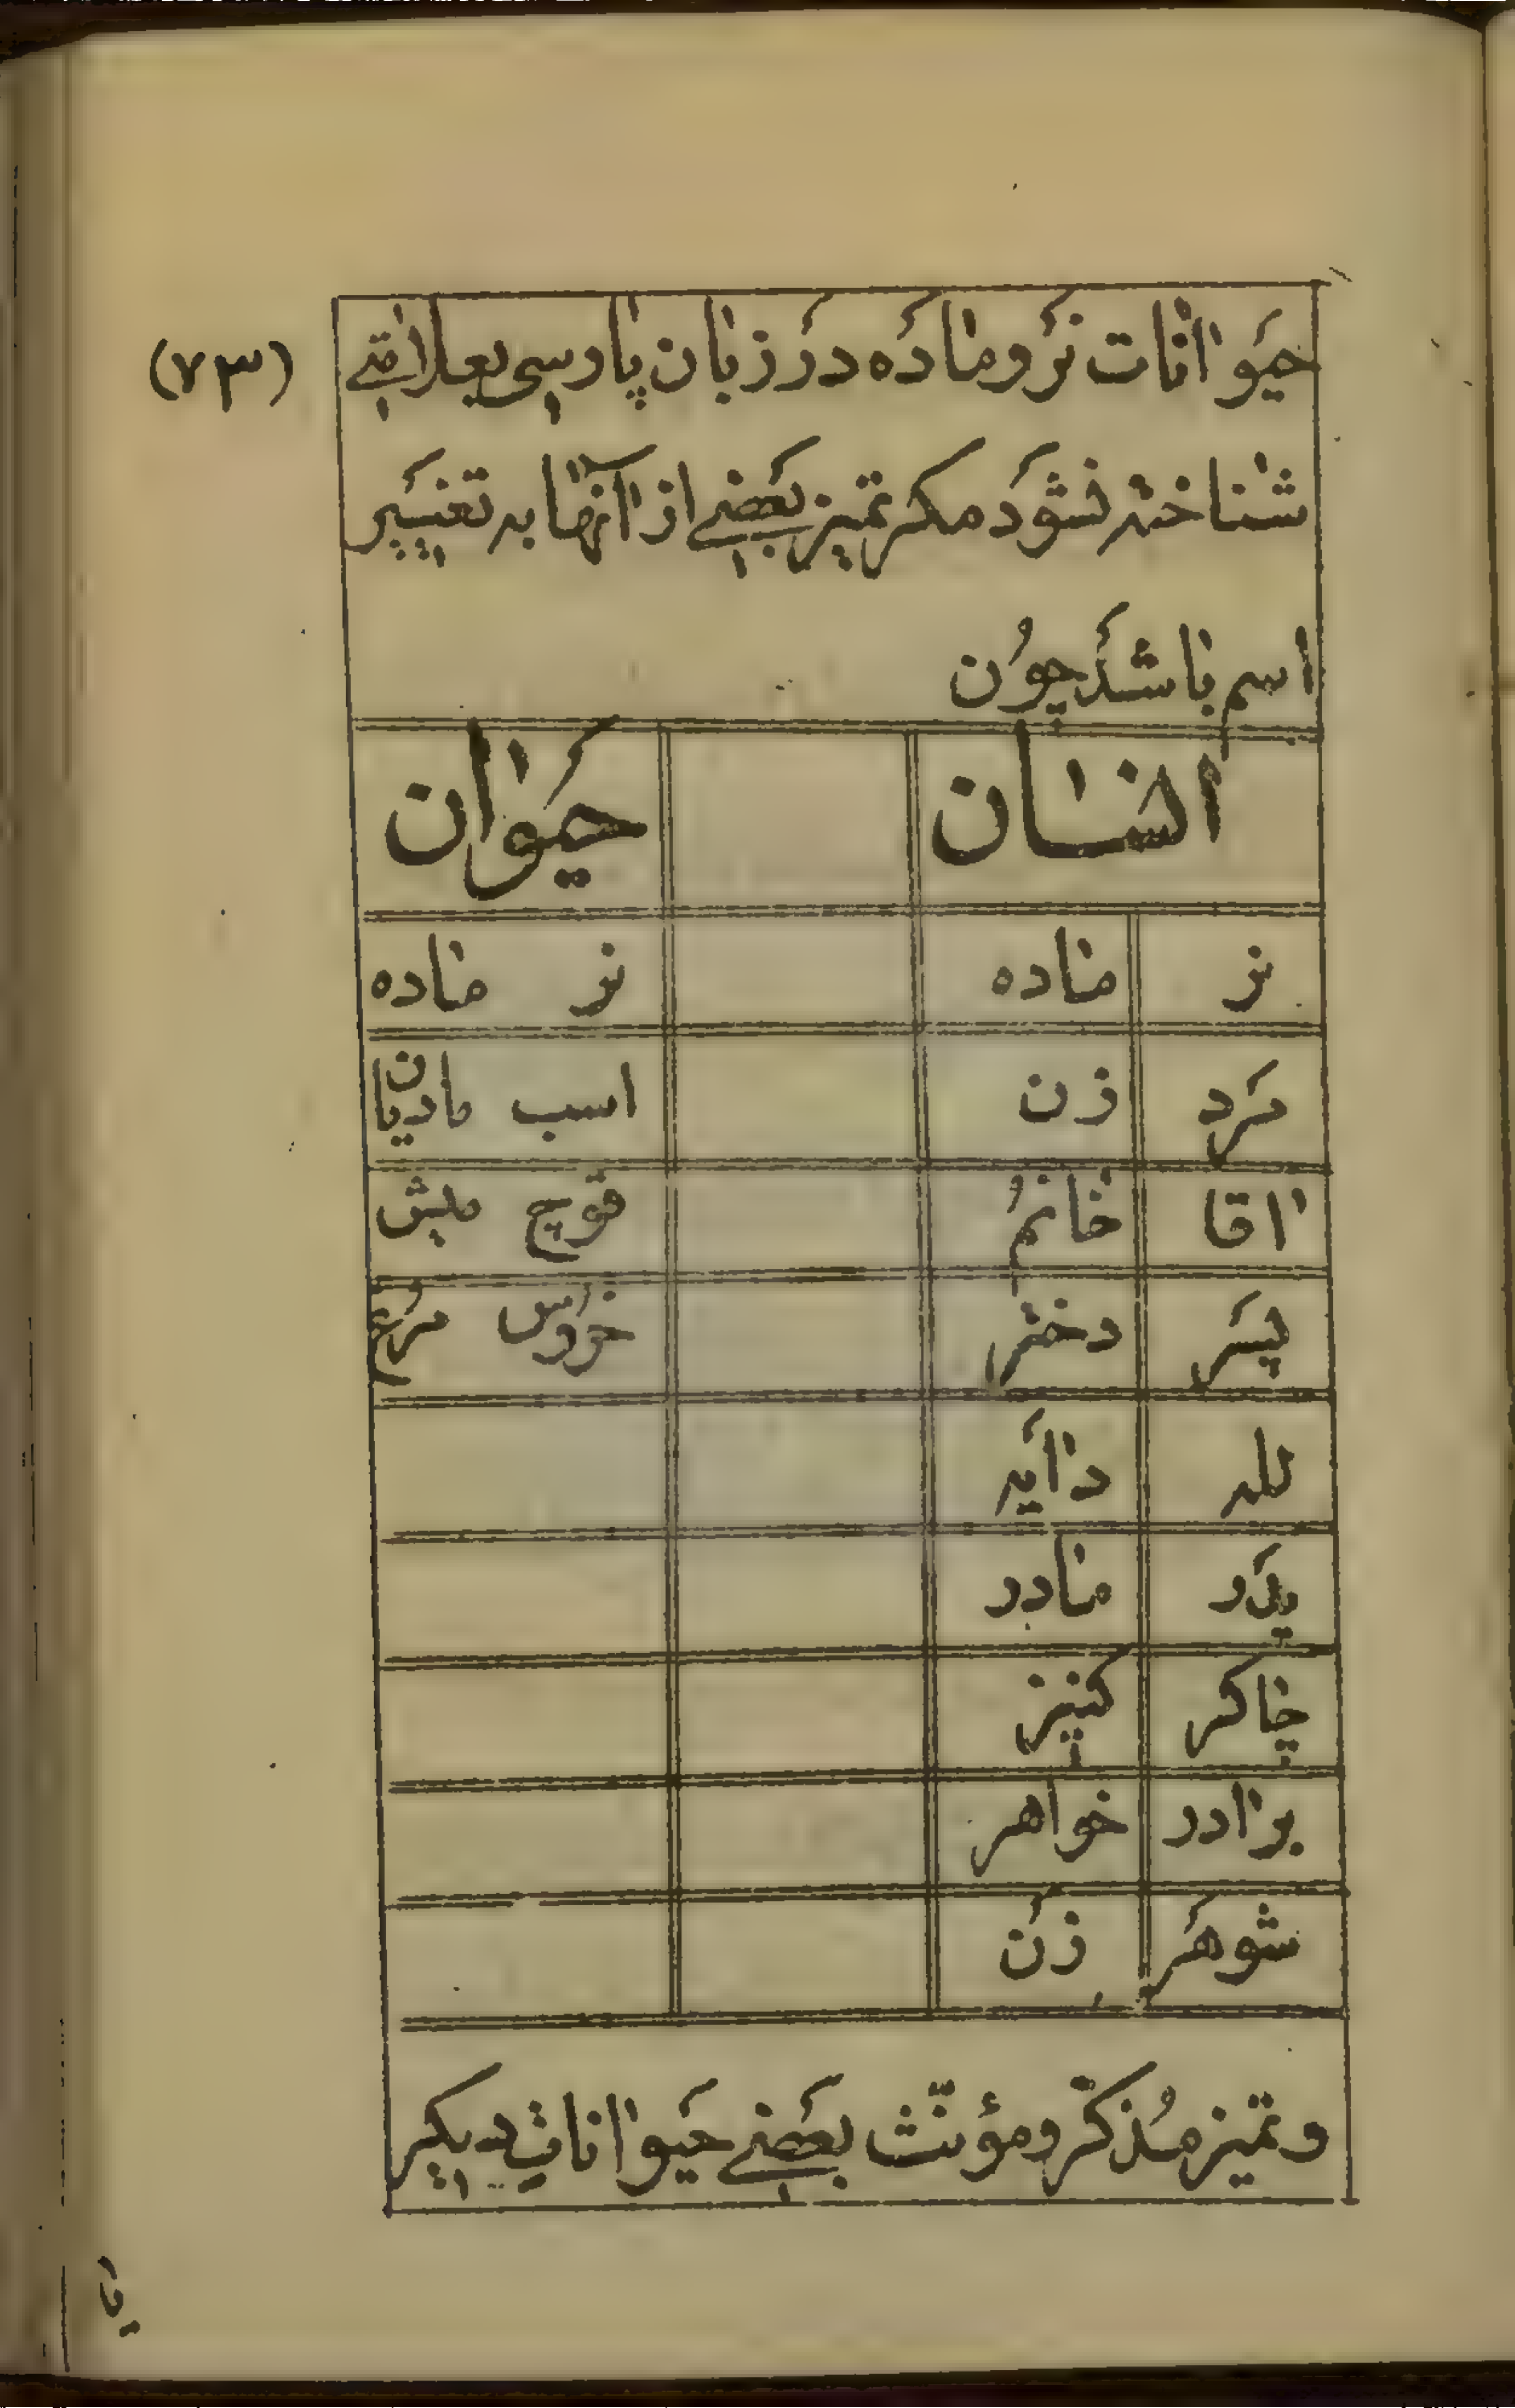 (۷۳)
حَیَوانات نَر و مادَه دَر زبان پارسی بعلامتے
شناخته نشَوَد مکر تمیز بَعضے از آنها به تغییر
اسم باشَد چوُن
انسان حَیَوان
نر ماده نر ماده
مَرد زن اسب مادیان
اقا خانمُ قوچ میش
پسَر دختر خروس مُرغ
لله دایَه
پدَر مادر
چاکر کنیز
برادر خواهر
شوهَر زَن
و تمیز مُذکّر و مؤنّث بَعضے حَیَوانات دیکر
یا